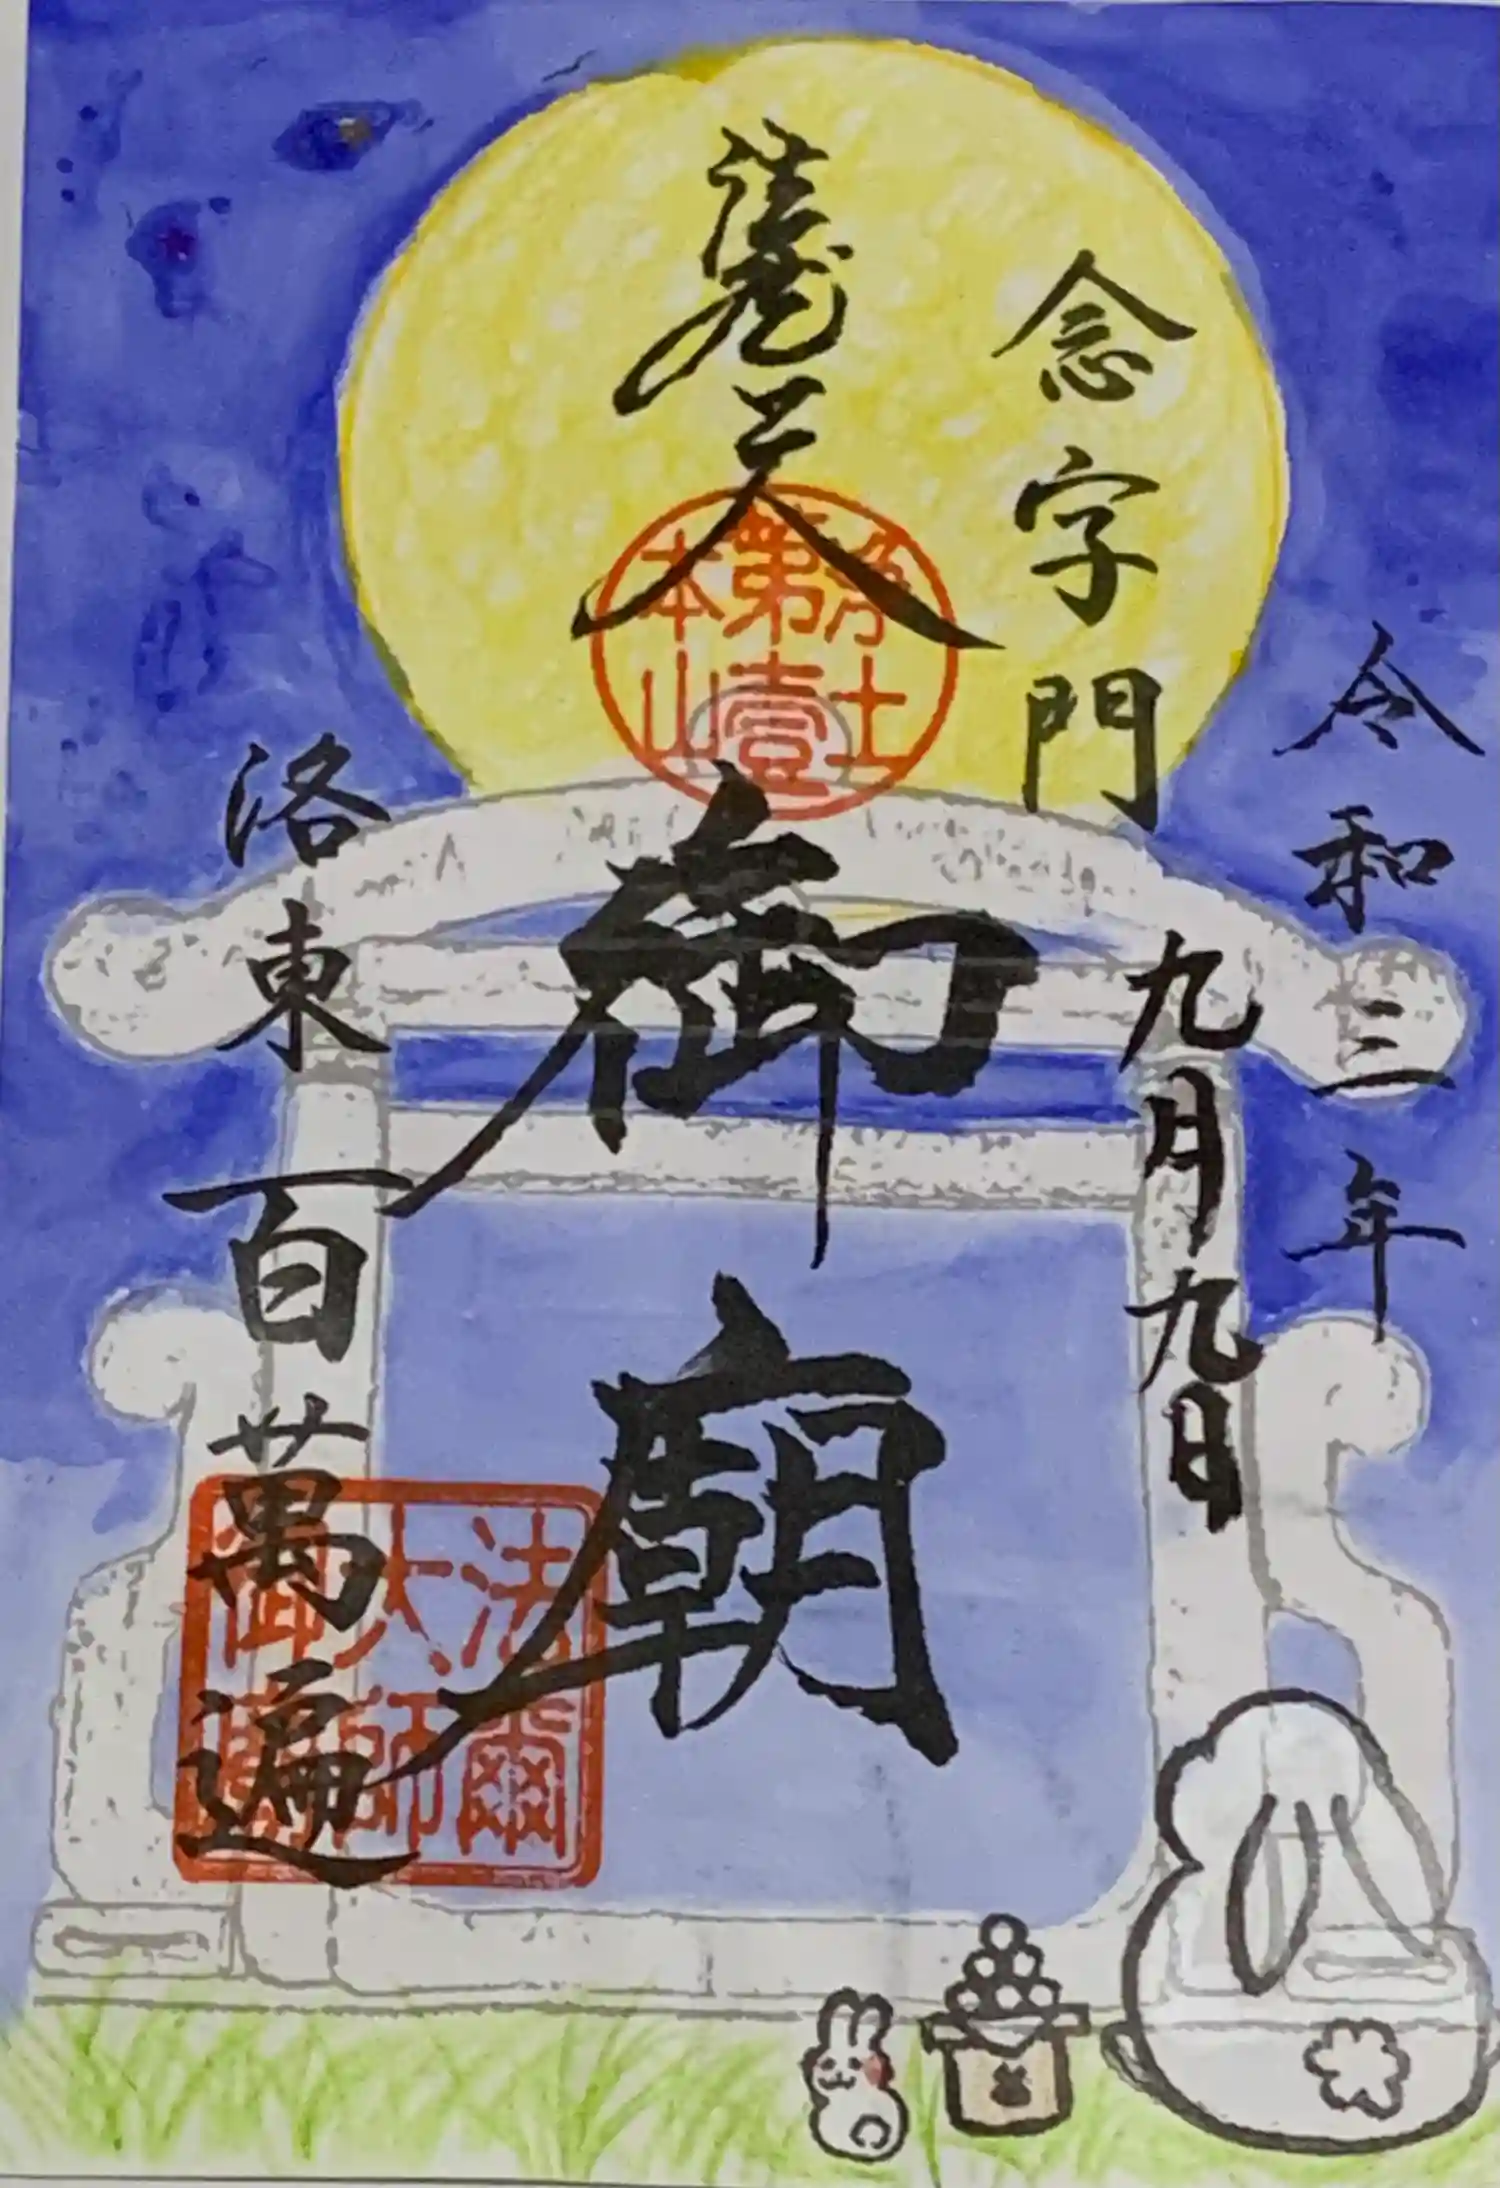 令和三年
九月九日
念字門
法然上人
御廟
洛東百萬遍
浄土
第壹
本山
法爾
大師
御廟